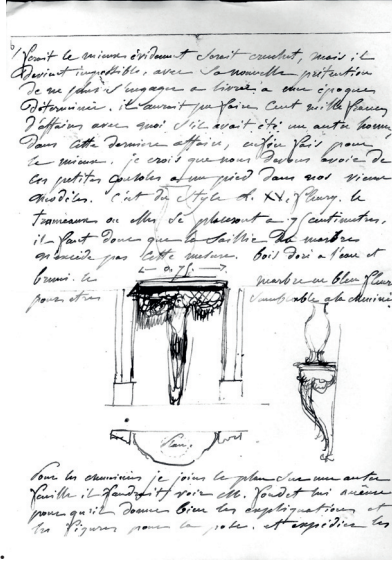 serait le mieux évidemment serait Cruchet, mais il
devient impossible, avec sa nouvelle prétention
de ne plus s'engager à livrer à une époque
déterminée. il aurait pu faire cent mille francs
d'affaires avec quoi s'il avait été un autre homme
Dans cette dernière affaire, enfin fais pour
le mieux. je crois que nous devons avoir de
ces petites consoles à un pied dans nos vieux
modèles. c'est du style L. XV, fleury. le
trumeaux où elles se placeront a 75 centimètres,
il faut donc que la saillie du marbre
n'excède pas cette mesure. bois doré à l'eau et
bruni. le marbre en bleu fleuri
pour être semblable à la cheminée
0,75
Plan
Pour les cheminées je joins le plan sur une autre
feuille il faudrait voir M. et lui même
pour qu'il donne bien les explications et
les figures pour la pose. et expédier les